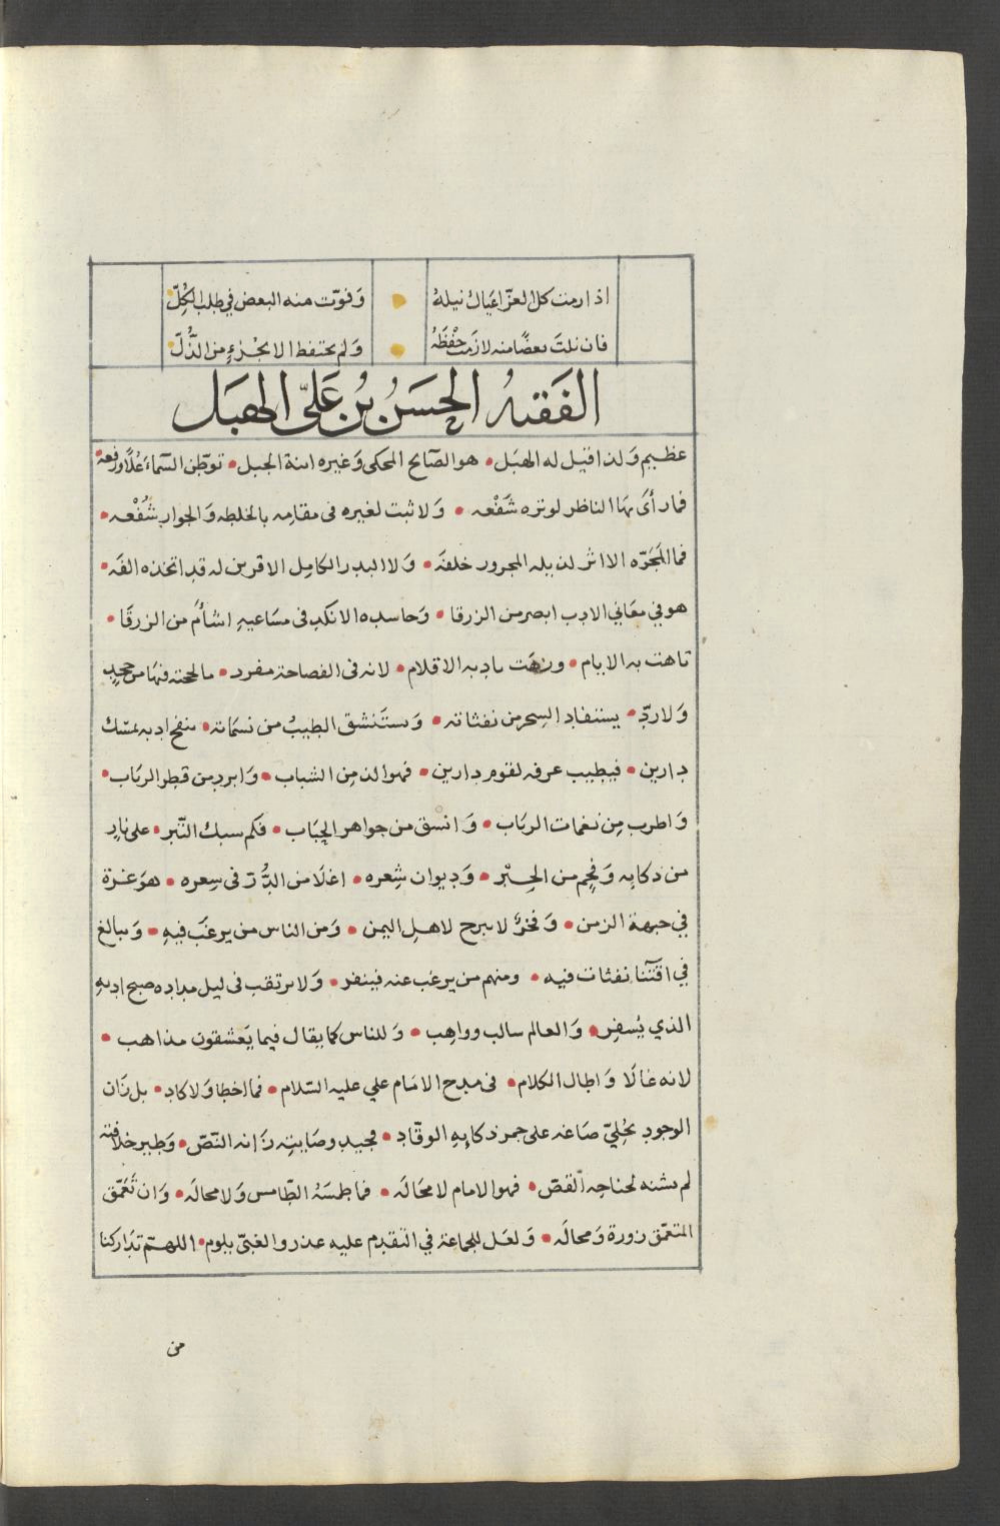 اذا رمت كل العزّ اعياك نيله وفوّت منه البعض في طلب الكلّ
فان نلت بعضًا منه لازمت حفظه ولم يحتفظ الا بجزءٍ من الذّلّ
الفقيه الحسن بن علي الهبل
عظيم ولذا قيل له الهبل • هو الصّايح المحكى وغيره ابنة الجبل • توطّن السّماء علًا ورفعه •
فما رأى بها الناظر لوتره شفعه • ولا ثبت لغيره فى مقامه بالخلطه والجوار شفعه •
فما المجرّه الا اثر لذيله المجرور خلفه • ولا البدر الكامل الا قرين له قد اتخذه الفه •
هو في معاني الادب ابصر من الزرقا • وحاسده الانكد فى مساعيه اشأم من الزرقا •
تاهت به الايام • وزهت بادبه الاقلام • لانه فى الفصاحة مفرد • ما لحجته فيها من جحدٍ
ولا ردّ • يستفاد السحر من نفثاته • وستنشق الطيب من نسماته • ينفح ادبه بمسك
دارين • فيطيب عرفه لقوم دارين • فهو الذ من الشباب • وابرد من قطر الرباب •
واطرب من نغمات الرباب • وانسق من جواهر الحباب • فكم سبك التبر • على نارٍ
من ذكايه وفحم من الحبر • وديوان شعره • اغلا من الدّر فى سعره • هو غرة
في جبهة الزمن • وفخر لا يبرح لاهل اليمن • ومن الناس من يرغب فيه • ويبالغ
في اقتنا نفثات فيه • ومنهم من يرغب عنه فينفر • ولا يرتقب فى ليل مداده صبح ادبه
الذي يسفر • والعالم سالب وواهب • وللناس كما يقال فيما يعشقون مذاهب •
لانه غالا واطال الكلام • فى مدح الامام علي عليه السّلام • فما اخطا ولا كاد • بل زان
الوجود بحليّ صاغه على جمر ذكايه الوقّاد • فجيد وصايته زانه النّصّ • وطير خلافته
لم يشنه لجناحه القصّ • فهو الامام لا محاله • فما طمسه الطّامس ولا محاله • وان تعمّق
المتعمّق زورة ومحاله • ولعل للجماعة في التقدم عليه عذر والغبيّ يلوم • اللهمّ تداركنا
من